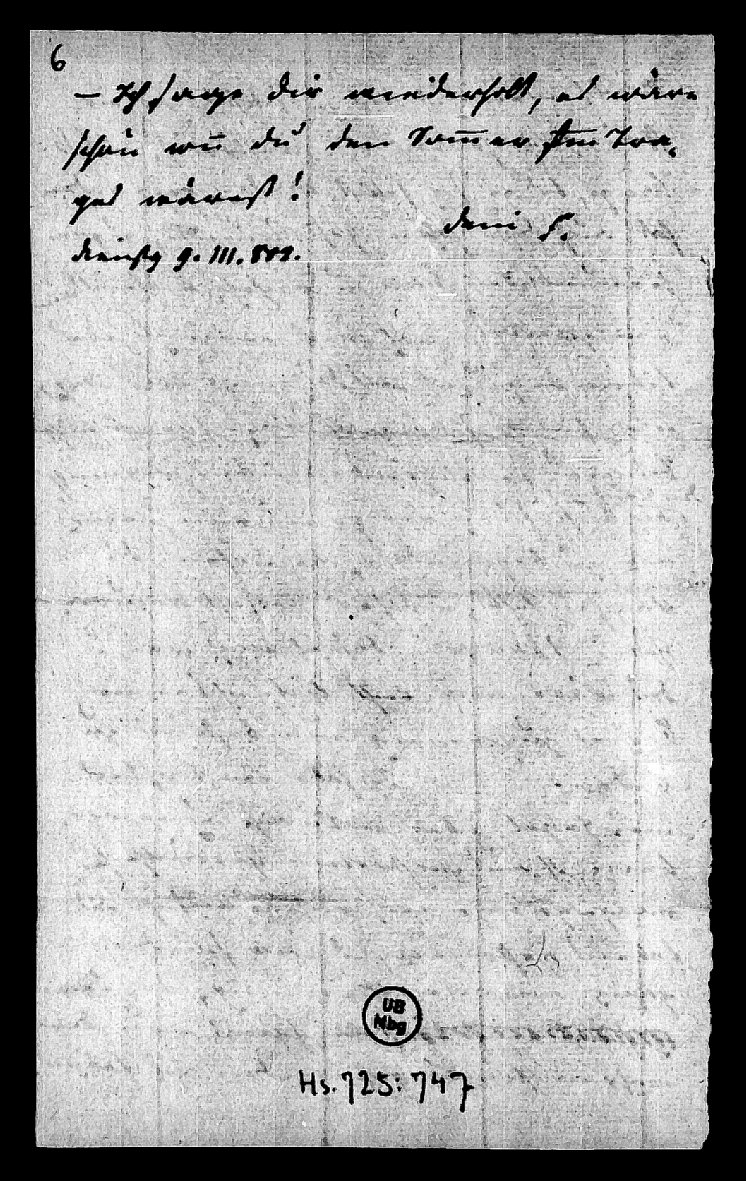 6
– Ich sage dir wiederholt, es wäre
schön wen̄ du den Som̄er Im Tra„
ges wärest!
dein S.
dienstg 9. III. 802.
UB
Mbg
Hs. 725: 747